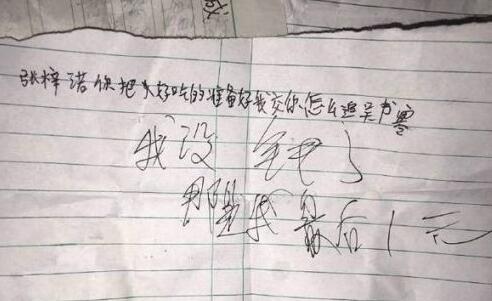 张梓诺你把好吃的准备好我交你怎么追吴书雯
我没钱了
那是我最后1元